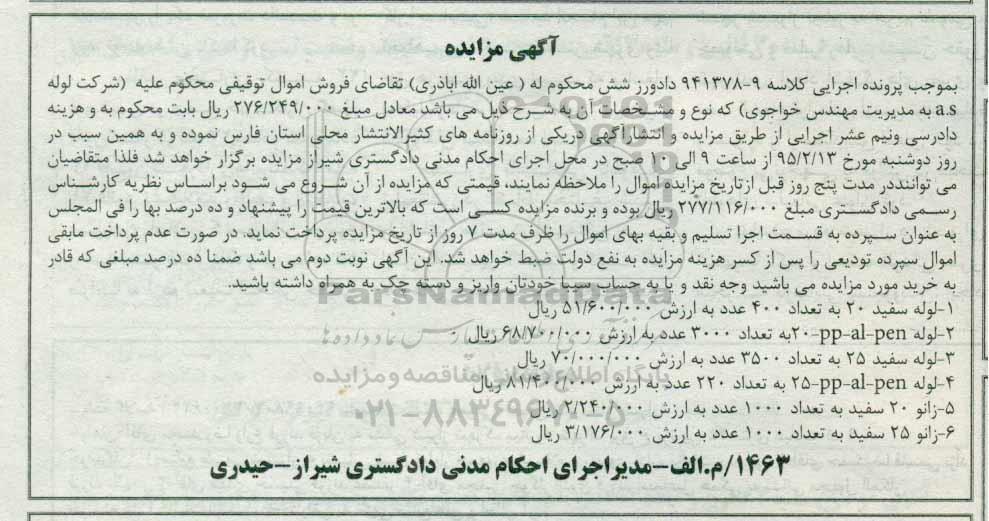 آگهی مزایده
بموجب پرونده اجرایی کلاسه ۹-۹۴۱۳۷۸ دادورز شش محکوم له ( عین الله اباذری) تقاضای فروش اموال توقیفی محکوم علیه (شرکت لوله
a.s به مدیریت مهندس خواجوی) که نوع و مشخصات آن به شرح ذیل می باشد معادل مبلغ ۲۷۶/۲۴۹/۰۰۰ ریال بابت محکوم به و هزینه
دادرسی ونیم عشر اجرایی از طریق مزایده و انتشارآگهی دریکی از روزنامه های کثیرالانتشار محلی استان فارس نموده و به همین سبب در
روز دوشنبه مورخ ۹۵/۲/۱۳ از ساعت ۹ الی ۱۰ صبح در محل اجرای احکام مدنی دادگستری شیراز مزایده برگزار خواهد شد فلذا متقاضیان
می تواننددر مدت پنج روز قبل ازتاریخ مزایده اموال را ملاحظه نمایند، قیمتی که مزایده از آن شروع می شود براساس نظریه کارشناس
رسمی دادگستری مبلغ ۲۷۷/۱۱۶/۰۰۰ ریال بوده و برنده مزایده کسی است که بالاترین قیمت را پیشنهاد و ده درصد بها را فی المجلس
به عنوان سپرده به قسمت اجرا تسلیم و بقیه بهای اموال را ظرف مدت ۷ روز از تاریخ مزایده پرداخت نماید. در صورت عدم پرداخت مابقی
اموال سپرده تودیعی را پس از کسر هزینه مزایده به نفع دولت ضبط خواهد شد. این آگهی نوبت دوم می باشد ضمنا ده درصد مبلغی که قادر
به خرید مورد مزایده می باشید وجه نقد و یا به حساب سیبا خودتان واریز و دسته چک به همراه داشته باشید.
ParsNamadData
۱-لوله سفید ۲۰ به تعداد ۴۰۰ عدد به ارزش ۵۱/۶۰۰/۰۰۰ ریال
۲-لوله pp-al-pen-۲۰به تعداد ۳۰۰۰ عدد به ارزش ۶۸/۷۰۰/۰۰۰ ریال
۳-لوله سفید ۲۵ به تعداد ۳۵۰۰ عدد به ارزش ۷۰/۰۰۰/۰۰۰ ریال
پایگاه اطلاع رسانی مناقصه و مزایده
۴-لوله pp-al-pen-۲۵ به تعداد ۲۲۰ عدد به ارزش ۸۱/۴۰۰/۰۰۰ ریال
۵-زانو ۲۰ سفید به تعداد ۱۰۰۰ عدد به ارزش ۲/۲۴۰/۰۰۰ ریال
۰۲۱-۸۸۳۴۹۶۷۰-۵
۶-زانو ۲۵ سفید به تعداد ۱۰۰۰ عدد به ارزش ۳/۱۷۶/۰۰۰ ریال
۱۴۶۳/م.الف-مدیراجرای احکام مدنی دادگستری شیراز-حیدری